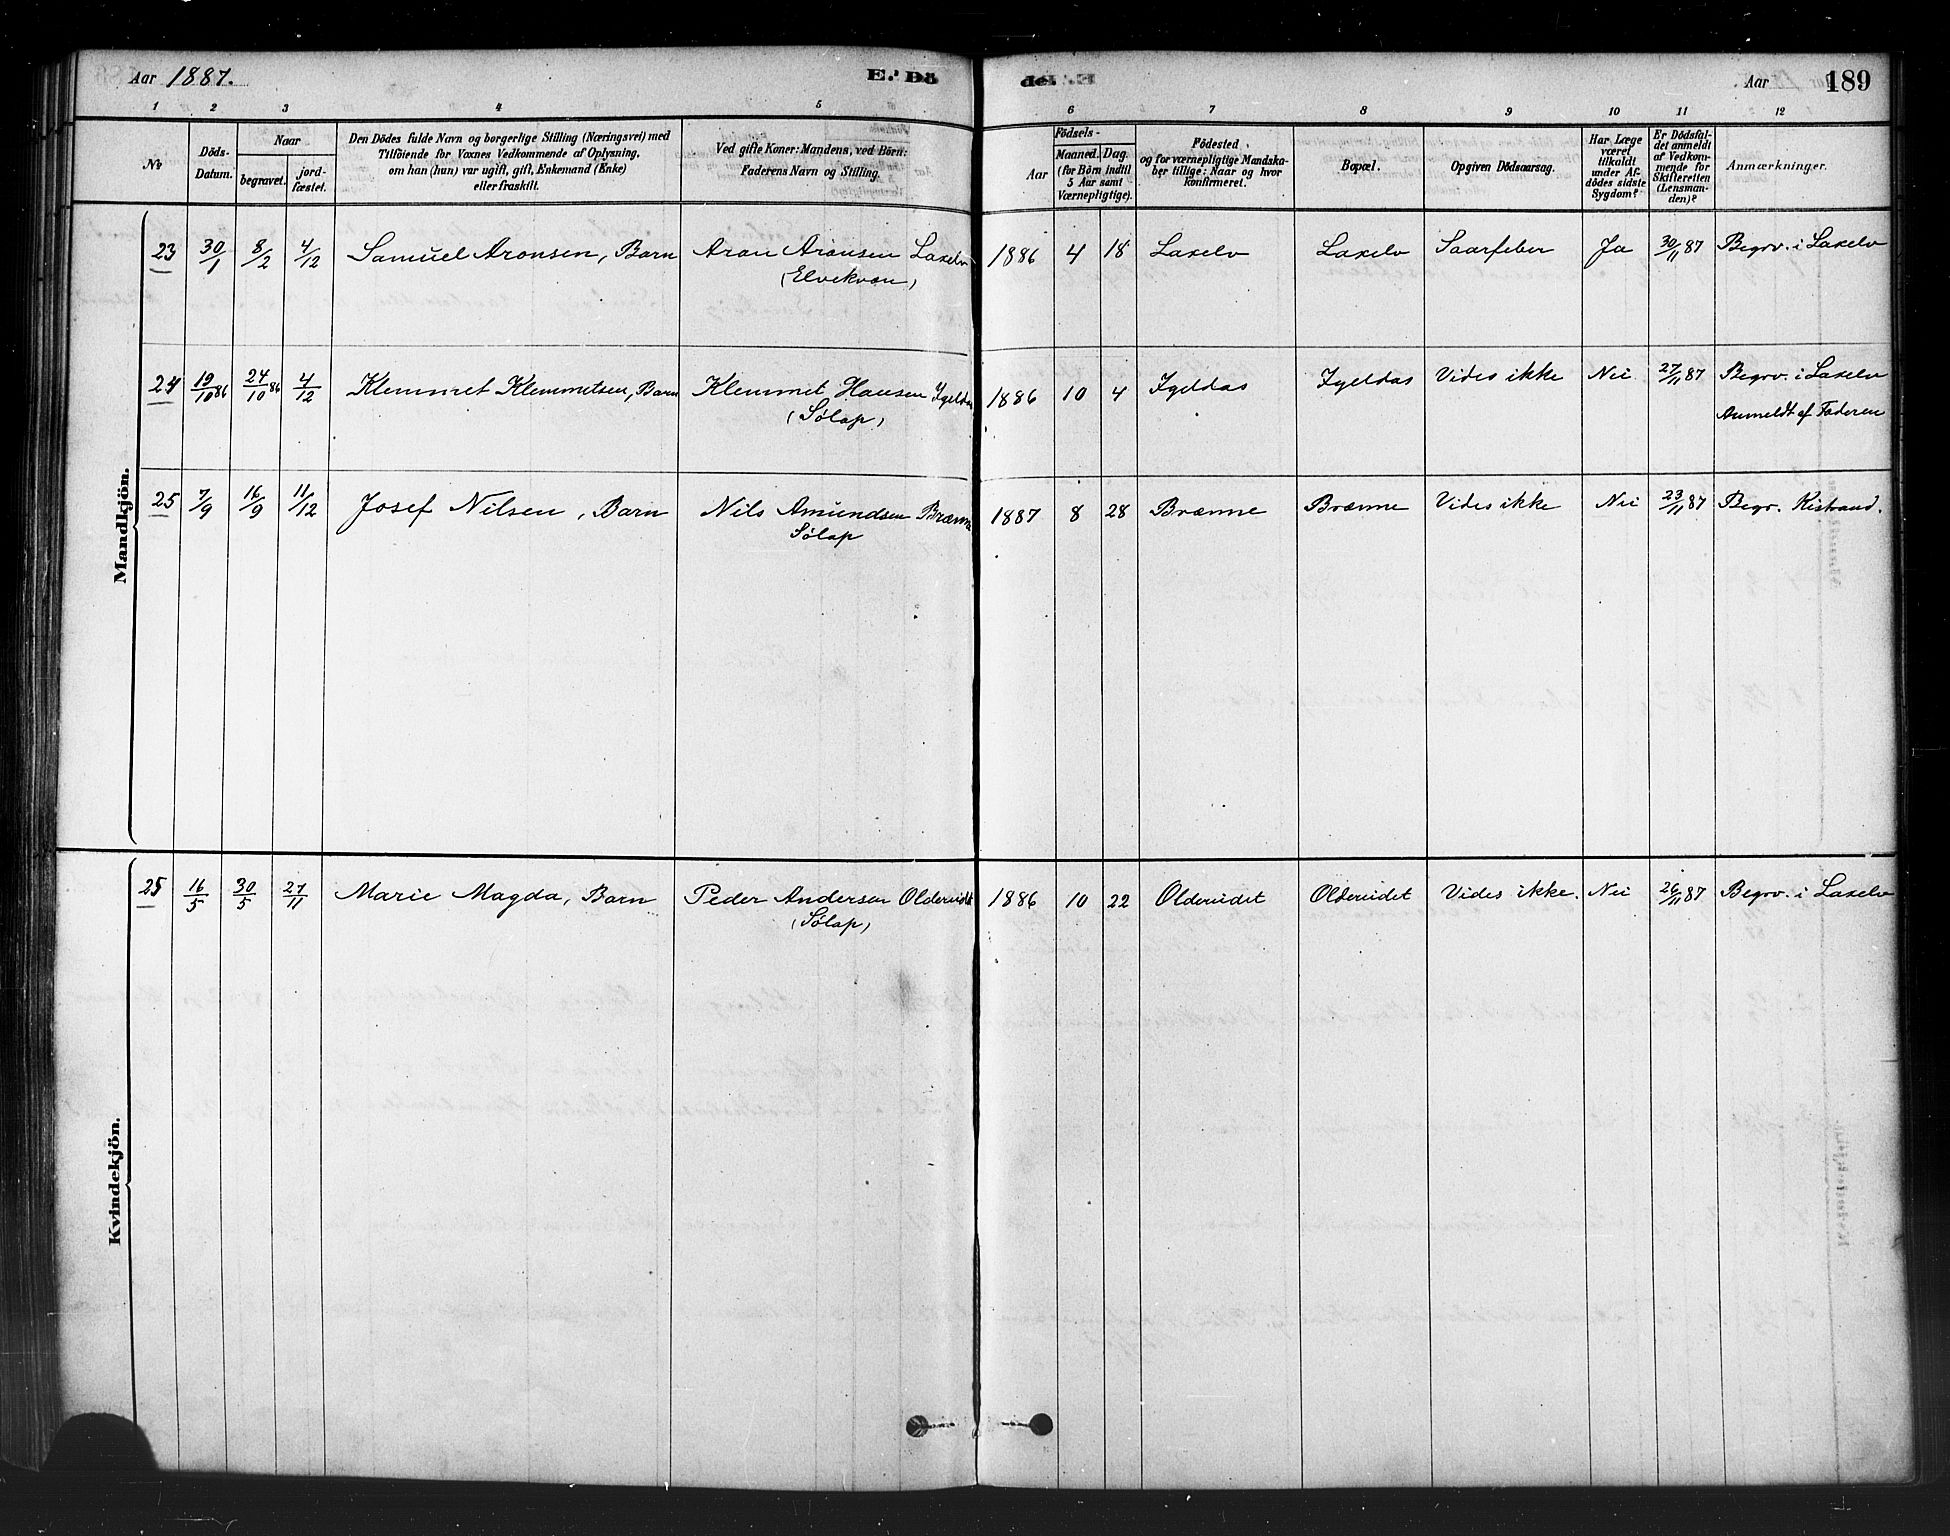 Aar 1887.
E. Dö
de.
Aar
189
1 2 3 4 5 6 7 8 9 10 11 12
No
Döds-Datum.
Naar
begravet.
jord-fæstet.
Den Dödes fulde Navn og borgerlige Stilling (Næringsvei) med
Tilföiende for Voxnes Vedkommende af Oplysning,
om han (hun) var ugift, gift, Enkemand (Enke)
eller fraskilt.
Ved gifte Koner: Mandens, ved Börn:
Faderens Navn og Stilling.
Födsels-
Aar
Maaned. Dag.
(for Börn indtil
5 Aar samt
Værnepligtige).
Födested
og for værnepligtige Mandska-
ber tillige: Naar og hvor
konfirmeret.
Bopæl.
Opgiven Dödsaarsag.
Har Læge
været
tilkaldt
under Af-
dödes sidste
Sygdom?
Er Dödsfal-
det anmeldt
af Vedkom-
mende for
Skifteretten
(Lensman-
den)?
Anmærkninger.
Mandkjön.
23 30/1 8/2 4/12 Samuel Aronsen, Barn Aron Aronsen Laxelv 1886 4 18 Laxelv Laxelv Saarfeber Ja 30/11 87 Begrv. i Laxelv
(Elvekvæn)
24 19/10 86 24/10 86 4/12 Klemmet Klemmetsen, Barn Klemmet Hansen Igeldas 1886 10 4 Igeldas Igeldas Vides ikke Nei 27/11 87 Begrv. i Laxelv
(Sølap) Anmeldt af Faderen
25 7/9 16/9 11/12 Josef Nilsen, Barn Nils Amundsen Brænne 1887 8 28 Brænne Brænne Vides ikke Nei 23/11 87 Begr. Kistrand.
Sølap
Kvindekjön.
25 16/5 30/5 27/11 Marie Magda, Barn Peder Andersen Oldervidet 1886 10 22 Oldervidet Oldervidet Vides ikke. Nei 26/11 87 Begrv. i Laxelv
(Sølap)